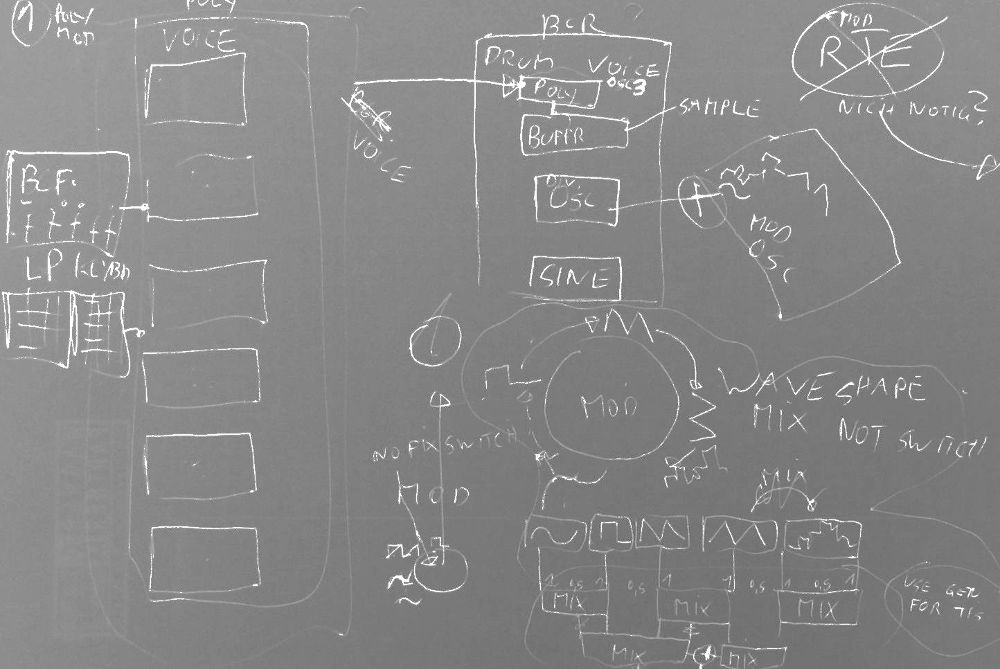 1 POLY
MOD
POLY
VOICE
BCF.
LP KEYBD
VOICE
BCR
DRUM VOICE
POLY OSC3
BUFFR
SAMPLE
DIV
OSC
SINE
MOD
OSC
MOD
RITE
NICH NOTIG?
MOD
WAVE SHAPE
MIX NOT SWITCH!
NO FIX SWITCH
MOD
MIX
1 0,5 1 0,5 1 1 0,5 1 0,5 1
MIX MIX MIX
MIX MIX
USE
FOR